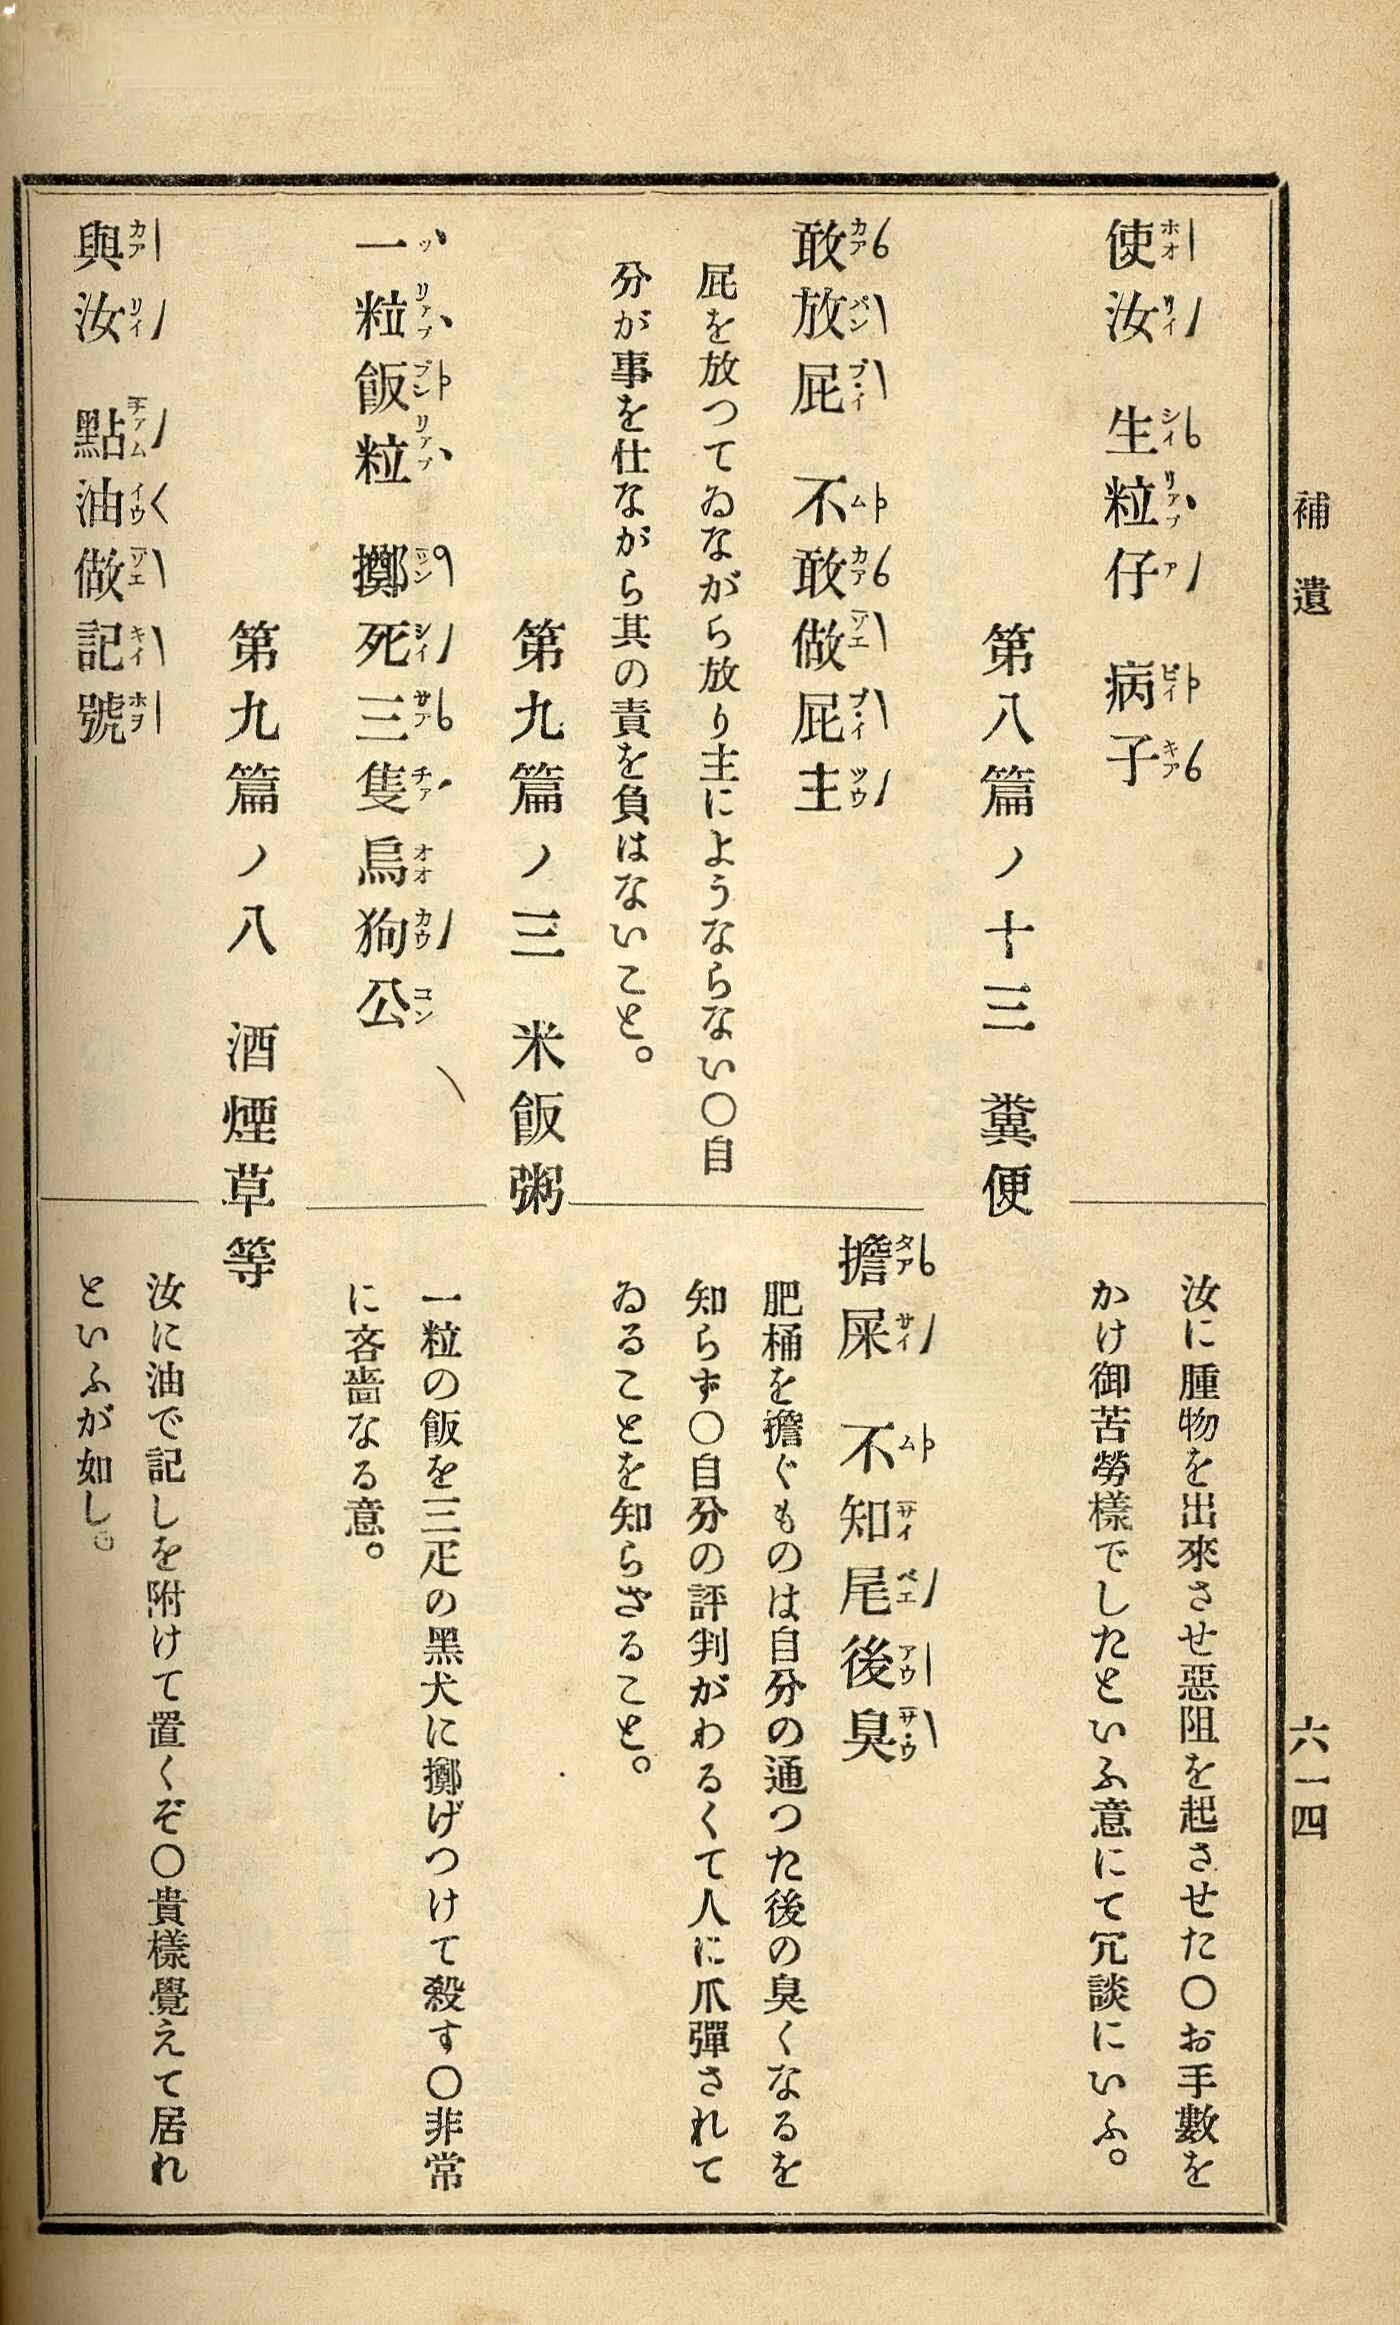 補遺
六一四
使汝 生粒仔 病子
汝に腫物を出來させ惡阻を起させた〇お手數を
かけ御苦勞樣でしたといふ意にて冗談にいふ。
第八篇ノ十三 糞便
敢放屁 不敢做屁主
屁を放つてゐながら放り主にようならない〇自
分が事を仕ながら其の責を負はないこと。
擔屎 不知尾後臭
肥桶を擔ぐものは自分の通つた後の臭くなるを
知らず〇自分の評判がわるくて人に爪彈されて
ゐることを知らざること。
第九篇ノ三 米飯粥
一粒飯粒 擲死三隻烏狗公
一粒の飯を三疋の黑犬に擲げつけて殺す〇非常
に吝嗇なる意。
第九篇ノ八 酒煙草等
與汝 點油做記號
汝に油で記しを附けて置くぞ〇貴樣覺えて居れ
といふが如し。